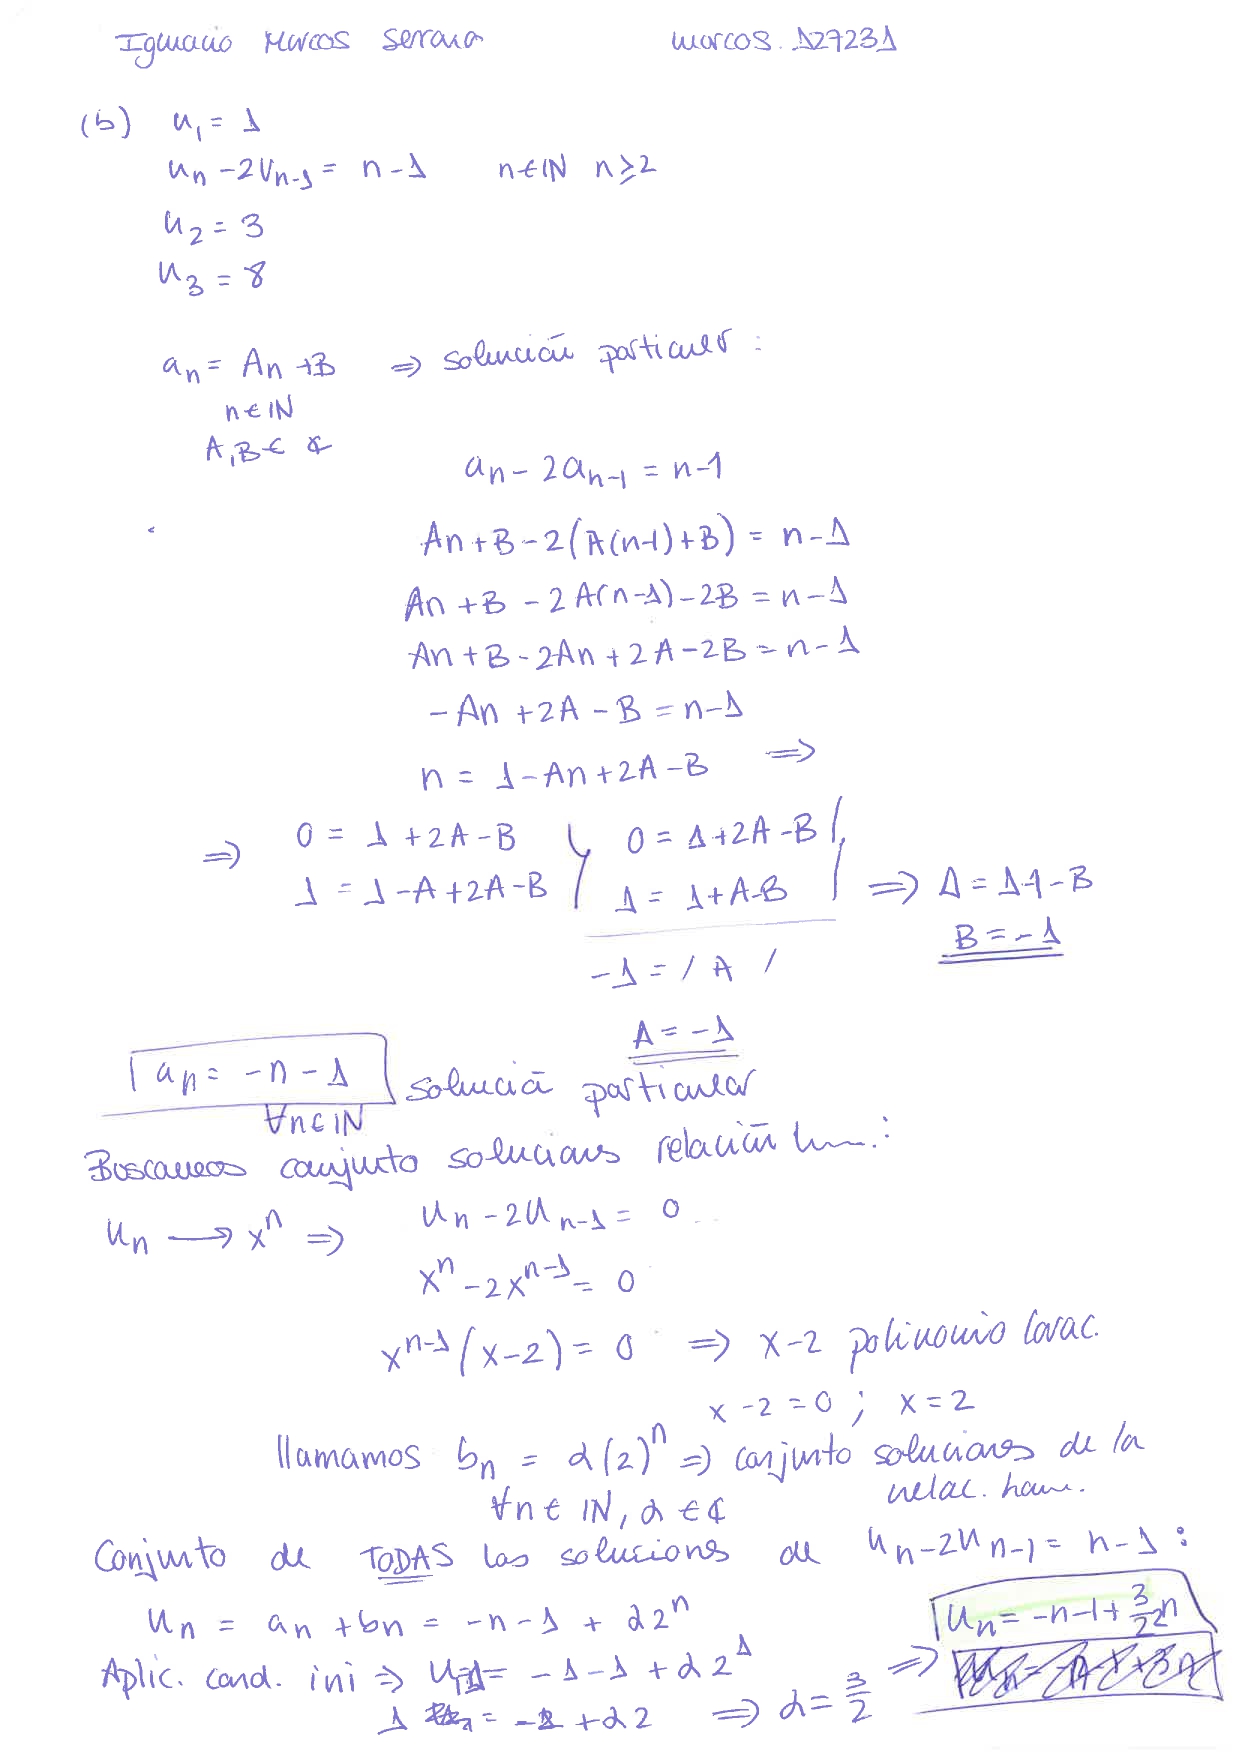 Ignacio Marcos Serrano marcos.127231
(b) u₁ = 1
uₙ - 2Vₙ₋₁ = n - 1 n ∈ ℕ n ≥ 2
u₂ = 3
u₃ = 8
aₙ = An + B ⇒ solución particular :
n ∈ ℕ
A, B ∈ ₵
aₙ - 2aₙ₋₁ = n-1
An + B - 2(A(n-1) + B) = n - 1
An + B - 2A(n-1) - 2B = n - 1
An + B - 2An + 2A - 2B = n - 1
-An + 2A - B = n - 1
n = 1 - An + 2A - B ⇒
⇒ 0 = 1 + 2A - B } 0 = 1 + 2A - B }
1 = 1 - A + 2A - B } 1 = 1 + A - B } ⇒ 1 = 1-1 - B
B = -1
-1 = / A /
A = -1
aₙ = -n - 1 solución particular
∀n ∈ ℕ
Buscamos conjunto soluciones relación hom.:
uₙ → xⁿ ⇒ uₙ - 2uₙ₋₁ = 0
xⁿ - 2xⁿ⁻¹ = 0
xⁿ⁻¹(x - 2) = 0 ⇒ x - 2 polinomio carac.
x - 2 = 0 ; x = 2
llamamos bₙ = α(2)ⁿ ⇒ conjunto soluciones de la
relac. hom.
∀n ∈ ℕ, α ∈ ₵
Conjunto de TODAS las soluciones de uₙ - 2uₙ₋₁ = n - 1 :
uₙ = aₙ + bₙ = -n - 1 + α2ⁿ
Aplic. cond. ini ⇒ u₁ = -1 - 1 + α2¹
1 = -2 + α2 ⇒ α = 3/2
⇒ uₙ = -n - 1 + 3/2 2ⁿ